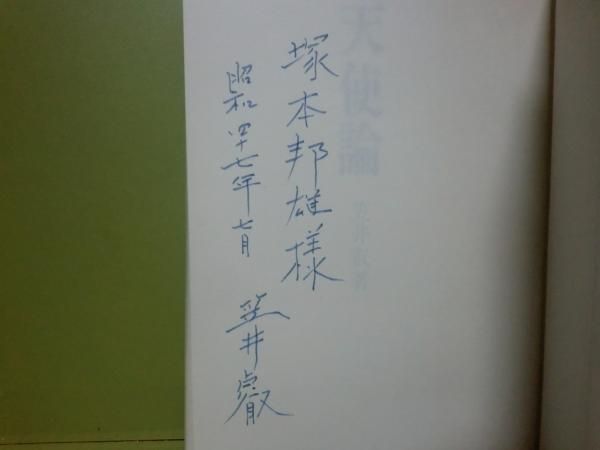 天使論
笠井叡著
塚本邦雄様
昭和四十七年七月
笠井叡